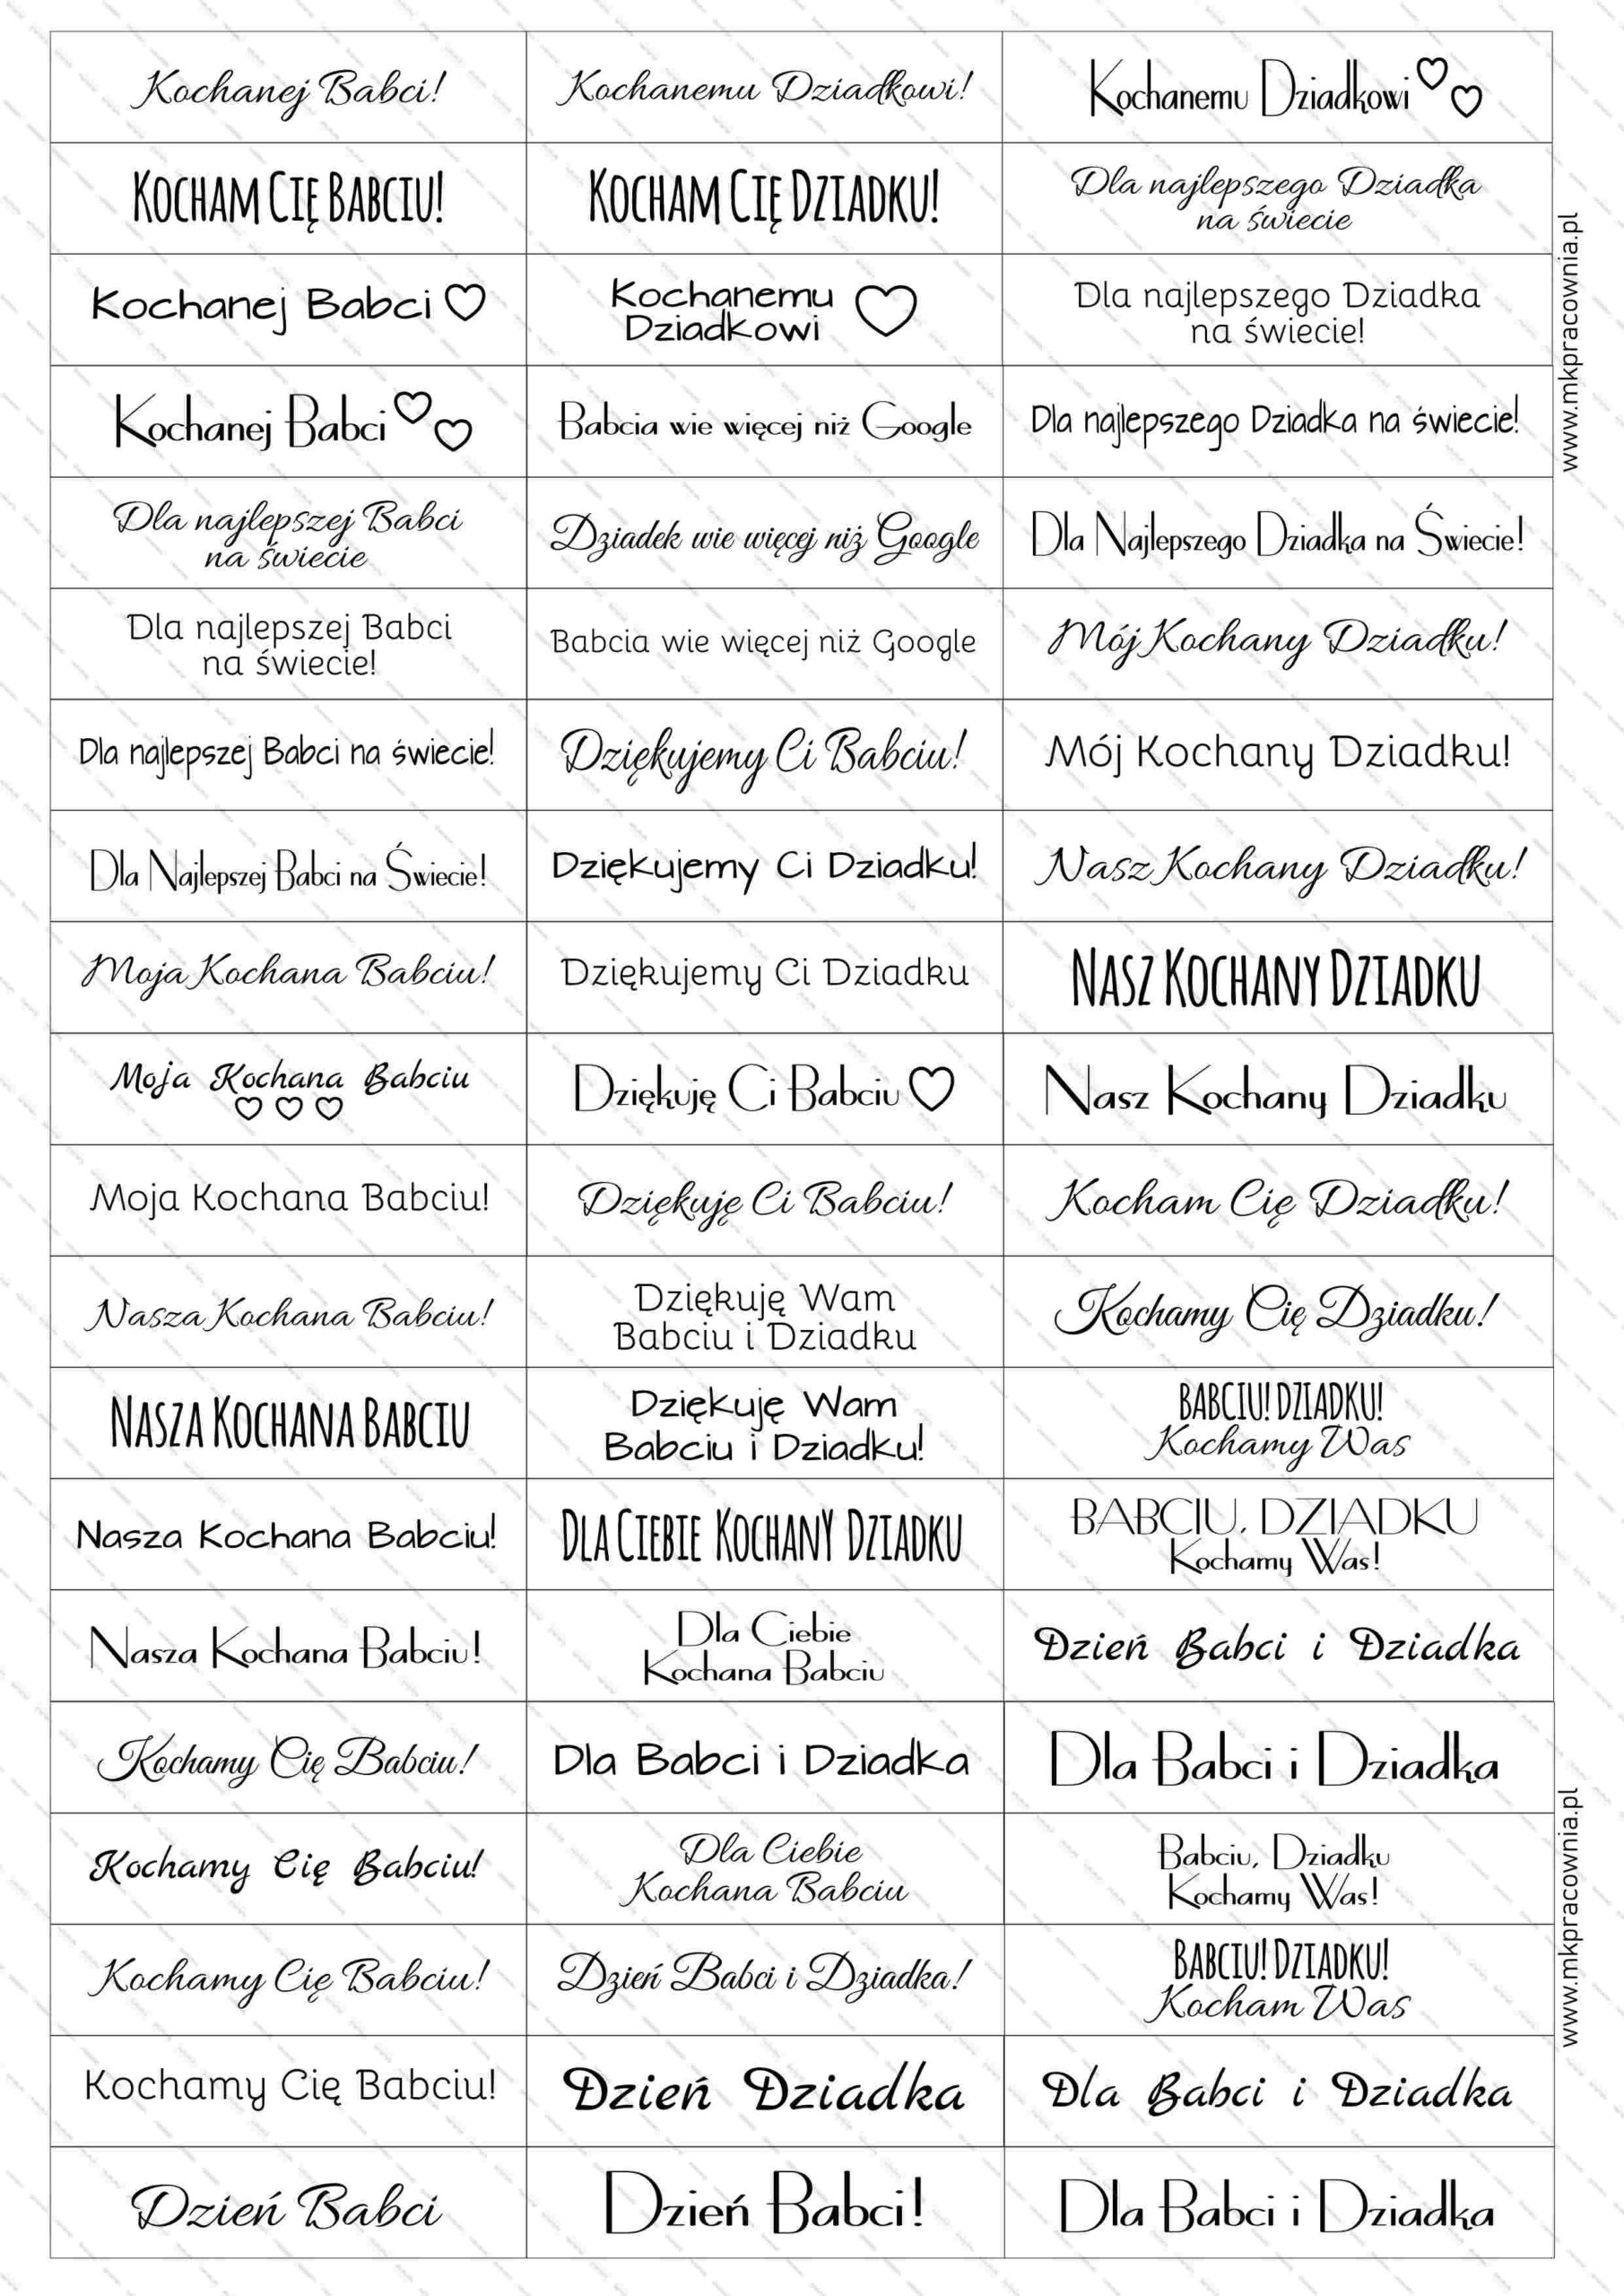 Kochanej Babci!
Kochanemu Dziadkowi!
Kochanemu Dziadkowi
KOCHAM CIĘ BABCIU!
KOCHAM CIĘ DZIADKU!
Dla najlepszego Dziadka
na świecie
Kochanej Babci
Kochanemu
Dziadkowi
Dla najlepszego Dziadka
na świecie!
Kochanej Babci
Babcia wie więcej niż Google
Dla najlepszego Dziadka na świecie!
Dla najlepszej Babci
na świecie
Dziadek wie więcej niż Google
Dla Najlepszego Dziadka na Świecie!
Dla najlepszej Babci
na świecie!
Babcia wie więcej niż Google
Mój Kochany Dziadku!
Dla najlepszej Babci na świecie!
Dziękujemy Ci Babciu!
Mój Kochany Dziadku!
Dla Najlepszej Babci na Świecie!
Dziękujemy Ci Dziadku!
Nasz Kochany Dziadku!
Moja Kochana Babciu!
Dziękujemy Ci Dziadku
NASZ KOCHANY DZIADKU
Moja Kochana Babciu
Dziękuję Ci Babciu
Nasz Kochany Dziadku
Moja Kochana Babciu!
Dziękuję Ci Babciu!
Kocham Cię Dziadku!
Nasza Kochana Babciu!
Dziękuję Wam
Babciu i Dziadku
Kochamy Cię Dziadku!
NASZA KOCHANA BABCIU
Dziękuję Wam
Babciu i Dziadku!
BABCIU! DZIADKU!
Kochamy Was
Nasza Kochana Babciu!
DLA CIEBIE KOCHANY DZIADKU
BABCIU, DZIADKU
Kochamy Was!
Nasza Kochana Babciu!
Dla Ciebie
Kochana Babciu
Dzień Babci i Dziadka
Kochamy Cię Babciu!
Dla Babci i Dziadka
Dla Babci i Dziadka
Kochamy Cię Babciu!
Dla Ciebie
Kochana Babciu
Babciu, Dziadku
Kochamy Was!
Kochamy Cię Babciu!
Dzień Babci i Dziadka!
BABCIU! DZIADKU!
Kocham Was
Kochamy Cię Babciu!
Dzień Dziadka
Dla Babci i Dziadka
Dzień Babci
Dzień Babci!
Dla Babci i Dziadka
www.mkpracownia.pl
www.mkpracownia.pl